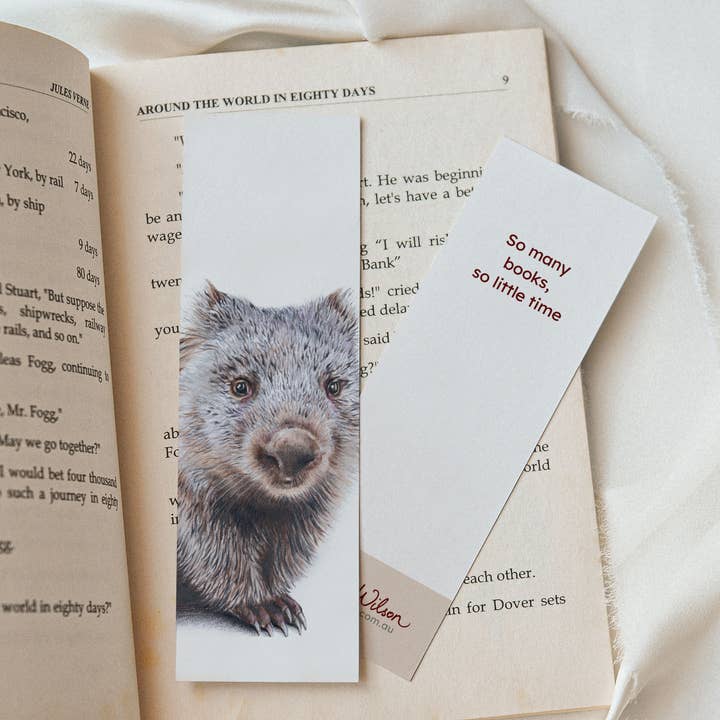 JULES VERNE
cisco,
22 days
York, by rail 7 days
, by ship
9 days
80 days
Stuart, "But suppose the
s, shipwrecks, railway
rails, and so on."
leas Fogg, continuing to
, Mr. Fogg,"
May we go together?"
I would bet four thousand
such a journey in eighty
gg,
world in eighty days?"
AROUND THE WORLD IN EIGHTY DAYS 9
rt. He was beginni
be an , let's have a be
wage
g "I will ris
Bank"
twen ds!" cried
ed dela
you said
g?"
ab
Fo he
orld
w
in
each other.
in for Dover sets
So many
books,
so little time
Wilson
.com.au